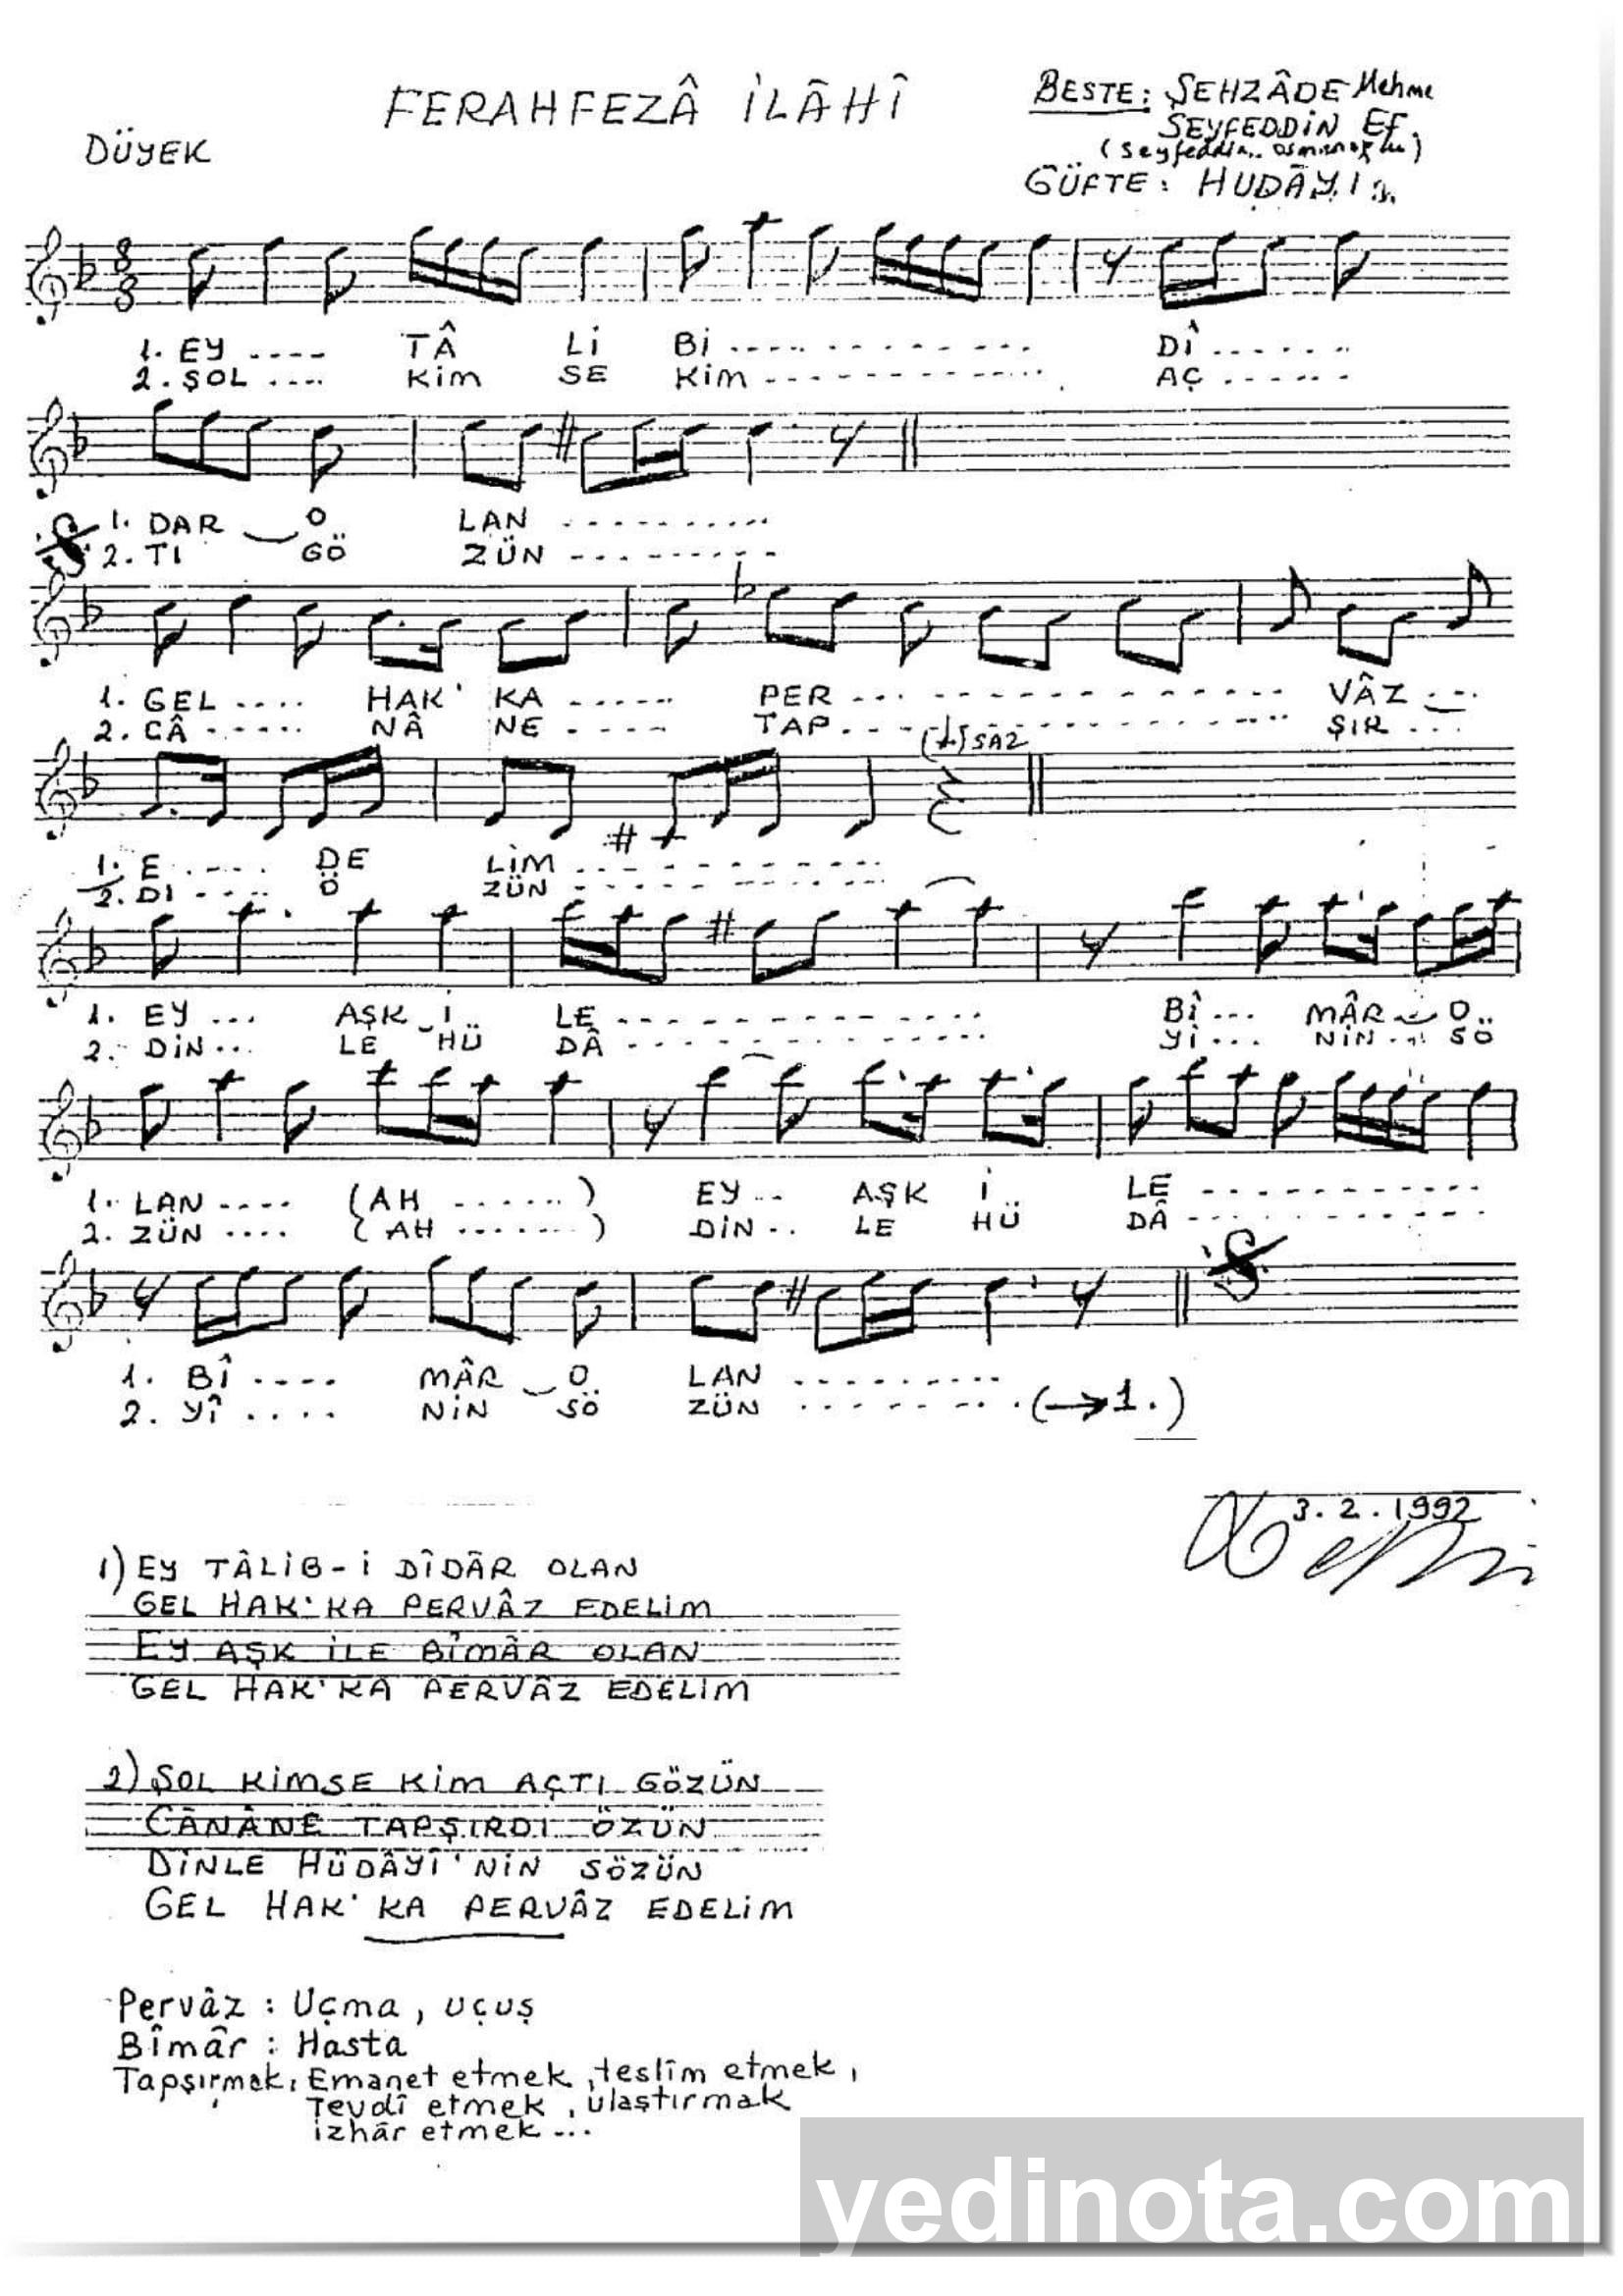 FERAHFEZÂ İLÂHÎ
BESTE: ŞEHZÂDE Mehme
SEYFEDDİN EF.
DÜYEK
(Seyfeddin Osmanoğlu)
GÜFTE: HUDÂYİ
8
8
1. EY .... TÂ Lİ Bİ .............. DÎ ......
2. ŞOL .... KİM SE KİM .............. AÇ ......
1. DAR O LAN ..........
2. TI GÖ ZÜN ..........
1. GEL .... HAK' KA ..... PER .............. VÂZ ...
2. CÂ ..... NÂ NE .... TAP .............. ŞIR ...
SAZ
1. E ..... DE LİM ..........
2. DI .... Ö ZÜN ..........
1. EY ... AŞK İ LE .............. BÎ ... MÂR O
2. DİN ... LE HÜ DÂ .............. Yİ ... NİN ... SÖ
1. LAN .... (AH ......) EY ... AŞK İ LE ..........
2. ZÜN .... (AH .......) DİN .. LE HÜ DÂ ..........
1. BÎ .... MÂR O LAN .........
2. YÎ .... NİN SÖ ZÜN ......... (→1.)
3.2.1992
1) EY TÂLİB-İ DÎDÂR OLAN
GEL HAK'KA PERVÂZ EDELİM
EY AŞK İLE BÎMÂR OLAN
GEL HAK'KA PERVÂZ EDELİM
2) ŞOL KİMSE KİM AÇTI GÖZÜN
CÂNÂNE TAPŞIRDI ÖZÜN
DİNLE HÜDÂYÎ'NİN SÖZÜN
GEL HAK'KA PERVÂZ EDELİM
Pervâz : Uçma, uçuş
Bîmâr : Hasta
Tapşırmak: Emanet etmek, teslîm etmek,
Tevdî etmek, ulaştırmak
izhâr etmek...
yedinota.com